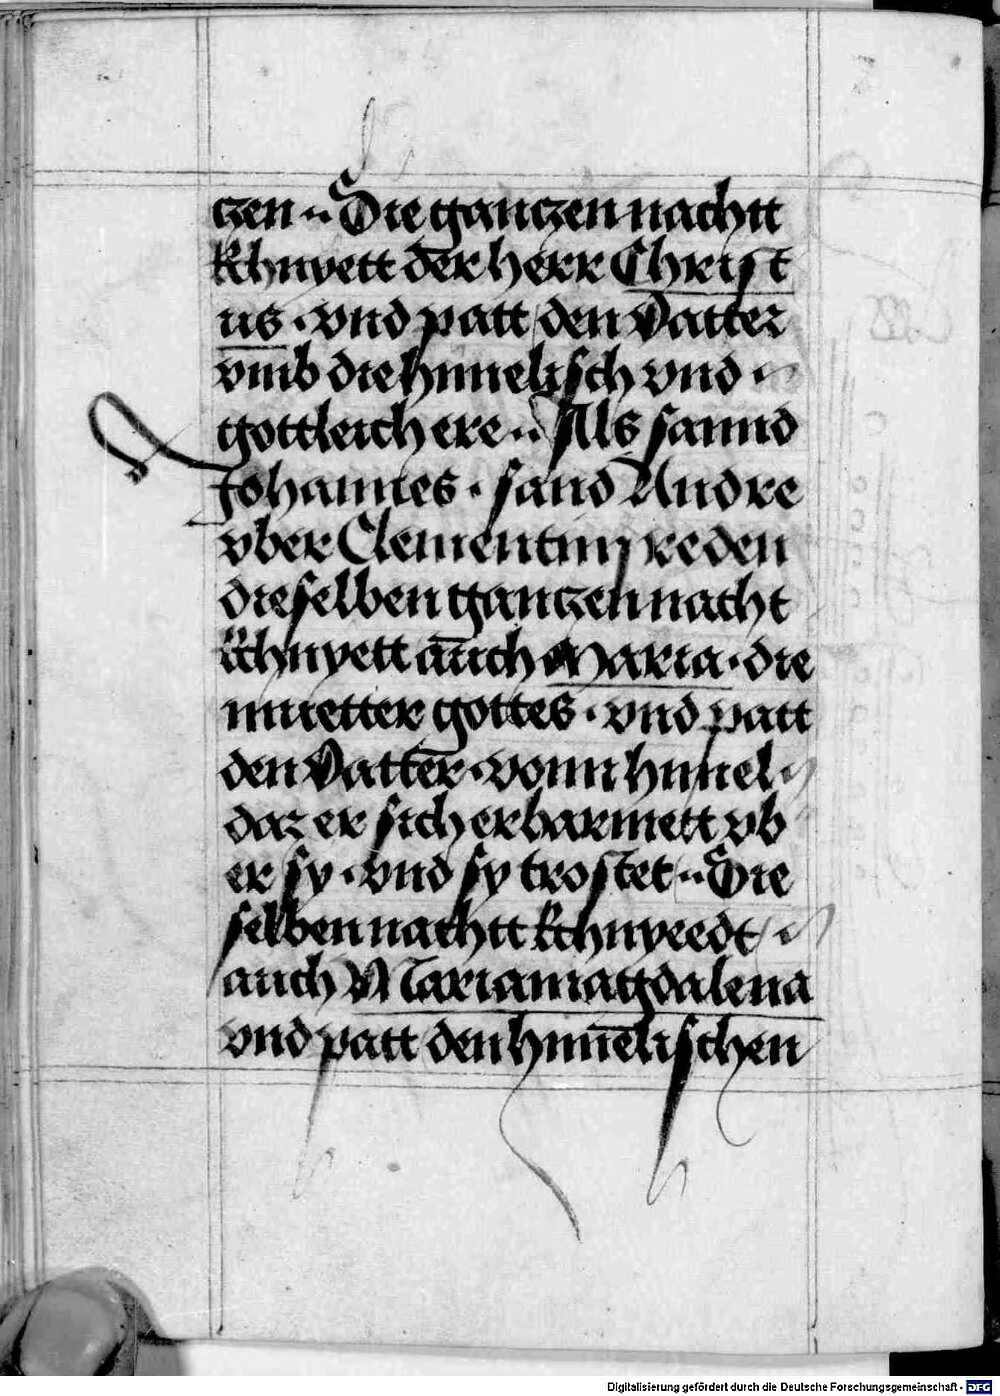 czen ·· Die ganczen nachtt
kchnyett der herr Christ
us · vnd patt den Vatter
vmb die himelisch vnd ·
gottleich ere ·· Als sannd
Johannes · sand Andre
vber Clementim reden
dieselben ganczen nacht
kchnyett auch Maria · die
muetter gottes · vnd patt
den Vatter · vonn himel ·
daz er sich erbarmett vb
er sy · vnd sy trostet ·· Die
selben nachtt kchnyeedt ·
auch Mariamagdalena
vnd patt den himelischen
Digitalisierung gefördert durch die Deutsche Forschungsgemeinschaft - DFG